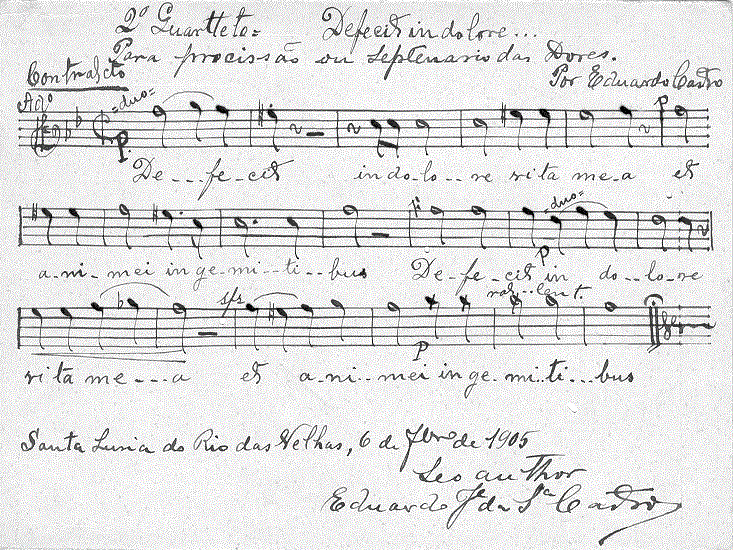 2º Quartteto= Defecit in dolore...
Para procissão ou septenario das Dores.
Contralcto
Por Eduardo Castro
Adº =duo= P
P.
De---fe-cit in do-lo--re vita me-a et
=duo=
a-ni-mei in ge-mi--ti--bus De-fe-cit in do--lo-re
P
ral---lent.
sfs
P
vita me---a et a-ni--mei in ge-mi-ti---bus
Santa Lusia do Rio das Velhas, 6 de 7bro de 1905
Seo author
Eduardo Je da Sa Castro